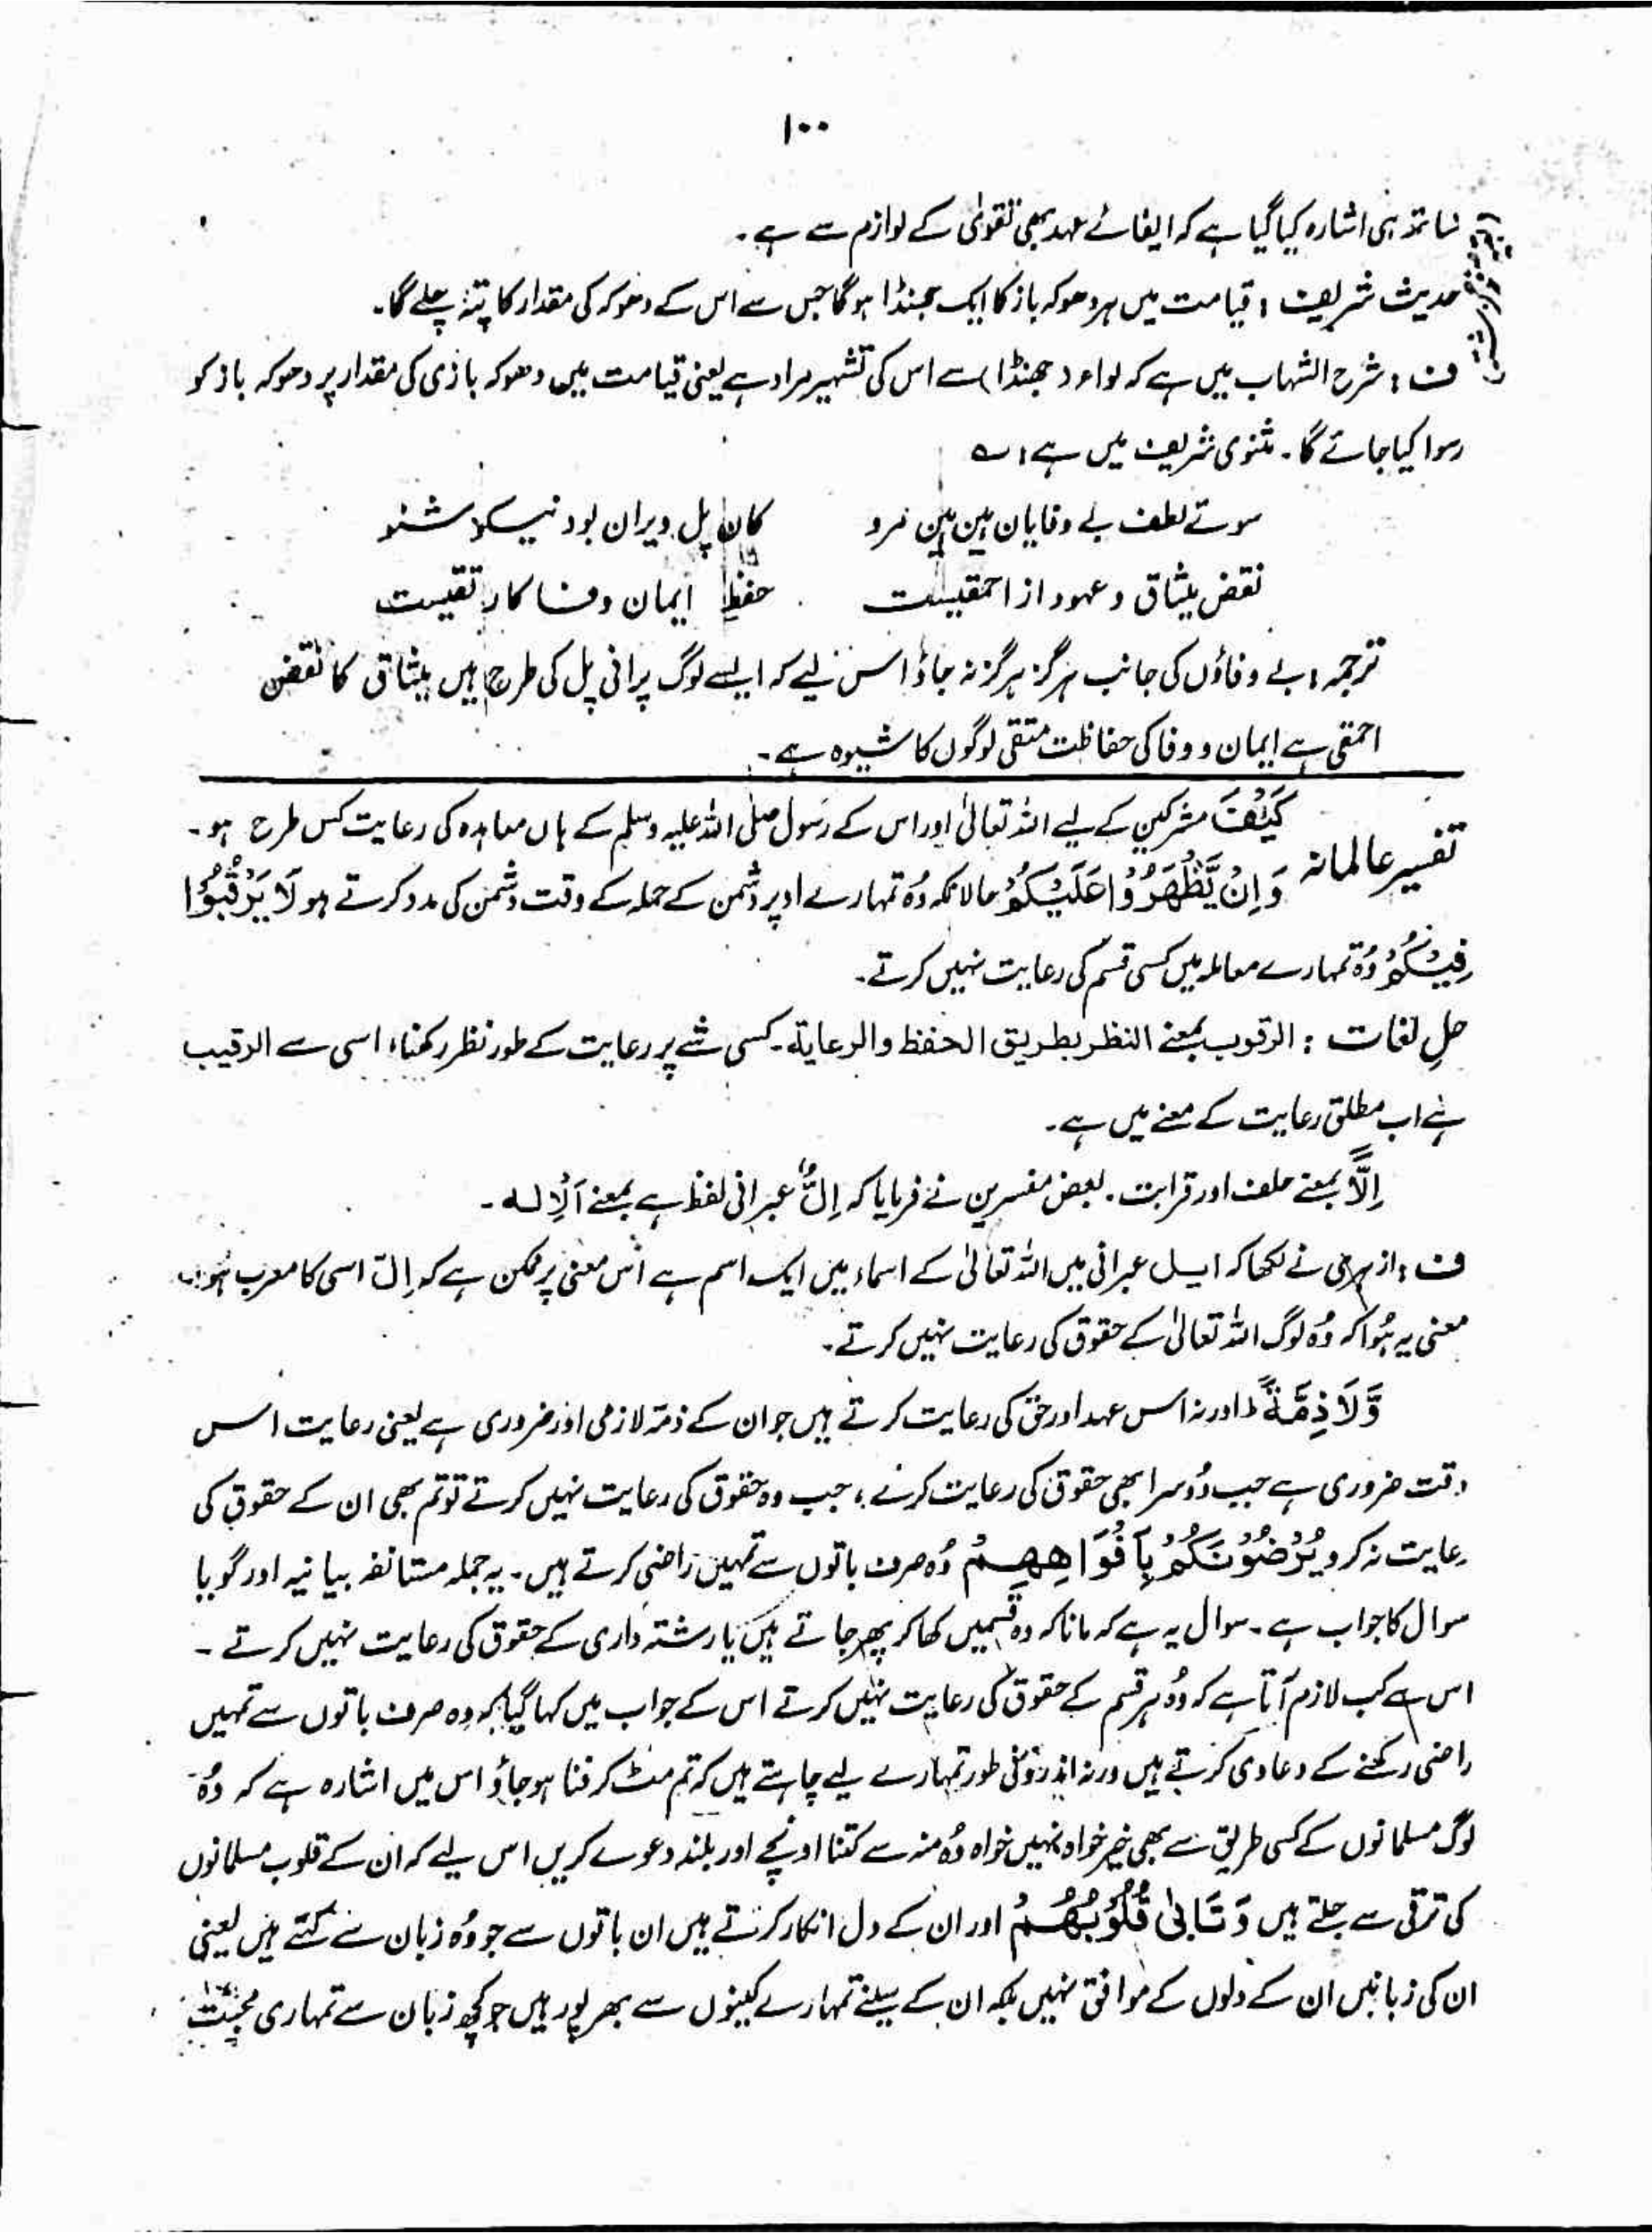 ۱۰۰
ساتھ ہی اشارہ کیا گیا ہے کہ ایفائے عہد بھی تقویٰ کے لوازم سے ہے۔
حدیث شریف : قیامت میں ہر دھوکہ باز کا ایک جھنڈا ہوگا جس سے اس کے دھوکہ کی مقدار کا پتہ چلے گا۔
ف : شرح الشہاب میں ہے کہ لواء ( جھنڈا ) سے اس کی تشہیر مراد ہے یعنی قیامت میں دھوکہ بازی کی مقدار پر دھوکہ باز کو
رسوا کیا جائے گا۔ مثنوی شریف میں ہے : ؎
سوئے لطف بے وفایان ہین ہین مرو کان پل ویران بود نیکو شنو
نقض میثاق و عہود از احمقیست حفظ ایمان و وفا کار تقیست
ترجمہ : بے وفاؤں کی جانب ہرگز ہرگز نہ جاؤ اس لیے کہ ایسے لوگ پرانی پل کی طرح ہیں میثاق کا نقض
احمقی ہے ایمان و وفا کی حفاظت متقی لوگوں کا شیوہ ہے۔
تفسیر عالمانہ كَيْفَ مشرکین کے لیے اللہ تعالیٰ اور اس کے رسول صلی اللہ علیہ وسلم کے ہاں معاہدہ کی رعایت کس طرح ہو۔
وَاِنْ يَّظْهَرُوْا عَلَيْكُمْ حالانکہ وُہ تمہارے اوپر دشمن کے حملہ کے وقت دشمن کی مدد کرتے ہو لَا يَرْقُبُوْا
فِيْكُمْ وُہ تمہارے معاملہ میں کسی قسم کی رعایت نہیں کرتے۔
حلِ لغات : الرقوب بمعنے النظر بطریق الحفظ والرعایة۔ کسی شے پر رعایت کے طور نظر رکھنا، اسی سے الرقیب
ہے اب مطلق رعایت کے معنے میں ہے۔
اِلًّا بمعنے حلف اور قرابت۔ بعض مفسرین نے فرمایا کہ اِلٌّ عبرانی لفظ ہے بمعنے اَلْاِلٰه۔
ف : ازہری نے لکھا کہ ایل عبرانی میں اللہ تعالیٰ کے اسماء میں ایک اسم ہے اس معنی پر ممکن ہے کہ اِلّ اسی کا معرب ہو۔
معنی یہ ہُوا کہ وُہ لوگ اللہ تعالیٰ کے حقوق کی رعایت نہیں کرتے۔
وَّلَا ذِمَّةً ؕ اور نہ اس عہد اور حق کی رعایت کرتے ہیں جو ان کے ذمہ لازمی اور ضروری ہے یعنی رعایت اس
وقت ضروری ہے جب دُوسرا بھی حقوق کی رعایت کرے، جب وہ حقوق کی رعایت نہیں کرتے تو تم بھی ان کے حقوق کی
رعایت نہ کرو يُرْضُوْنَكُمْ بِاَفْوَاهِهِمْ وُہ صرف باتوں سے تمہیں راضی کرتے ہیں۔ یہ جملہ مستانفہ بیانیہ اور گویا
سوال کا جواب ہے۔ سوال یہ ہے کہ مانا کہ وہ قسمیں کھا کر پھر جاتے ہیں یا رشتہ داری کے حقوق کی رعایت نہیں کرتے۔
اس سے کب لازم آتا ہے کہ وُہ ہر قسم کے حقوق کی رعایت نہیں کرتے اس کے جواب میں کہا گیا کہ وہ صرف باتوں سے تمہیں
راضی رکھنے کے دعاوی کرتے ہیں ورنہ اندرونی طور تمہارے لیے چاہتے ہیں کہ تم مٹ کر فنا ہو جاؤ اس میں اشارہ ہے کہ وُہ
لوگ مسلمانوں کے کسی طریق سے بھی خیر خواہ نہیں خواہ وُہ منہ سے کتنا اونچے اور بلند دعوے کریں اس لیے کہ ان کے قلوب مسلمانوں
کی ترقی سے جلتے ہیں وَتَاْبٰى قُلُوْبُهُمْ اور ان کے دل انکار کرتے ہیں ان باتوں سے جو وُہ زبان سے کہتے ہیں یعنی
ان کی زبانیں ان کے دلوں کے موافق نہیں بلکہ ان کے سینے تمہارے کینوں سے بھرپور ہیں جو کچھ زبان سے تمہاری محبت